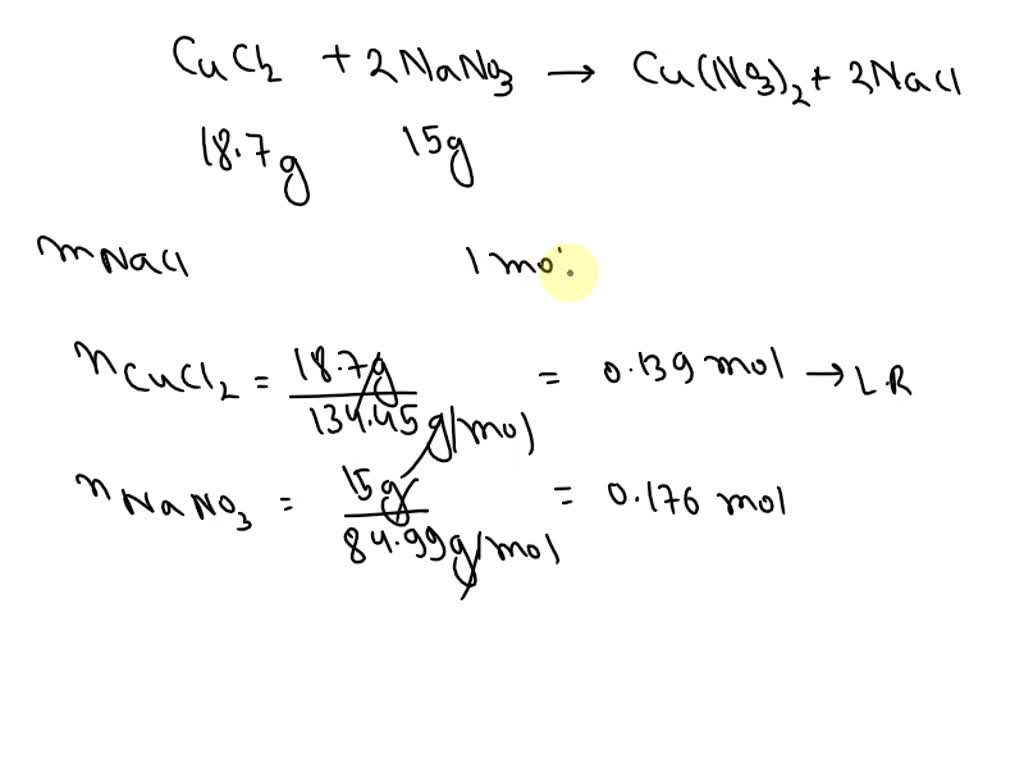 CuCl2 + 2NaNO3 → Cu(NO3)2 + 2NaCl
18.7g 15g
mNaCl 1 mol
nCuCl2 = 18.7g / 134.45 g/mol = 0.139 mol → L.R
nNaNO3 = 15g / 84.99 g/mol = 0.176 mol